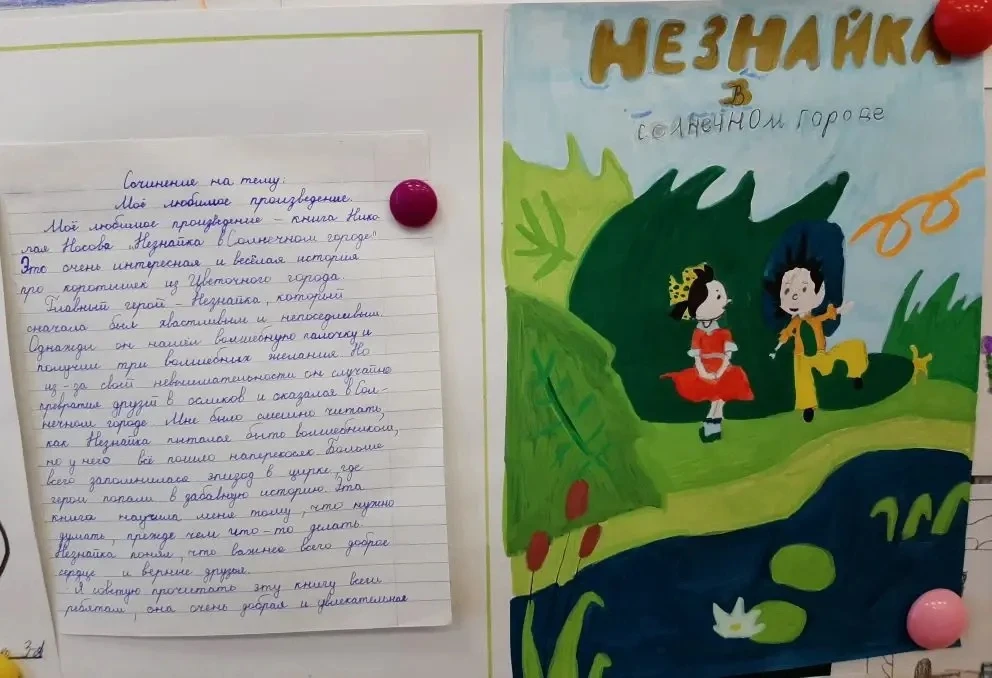 Сочинение на тему:
Моё любимое произведение.
Моё любимое произведение – книга Нико
лая Носова „Незнайка в Солнечном городе"
Это очень интересная и весёлая история
про коротышек из Цветочного города.
Главный герой – Незнайка, который
сначала был хвастливым и непоседливым.
Однажды он нашёл волшебную палочку и
получил три волшебных желания. Но
из-за своей невнимательности он случайно
превратил друзей в осликов и оказался в Сол-
нечном городе. Мне было смешно читать,
как Незнайка пытался быть волшебником,
но у него всё пошло наперекосяк. Больше
всего запомнился эпизод в цирке, где
герои попали в забавную историю. Эта
книга научила меня тому, что нужно
думать, прежде чем что-то делать.
Незнайка понял, что важнее всего доброе
сердце и верные друзья.
Я советую прочитать эту книгу всем
ребятам, она очень добрая и увлекательная
НЕЗНАЙКА
В
солнечном городе